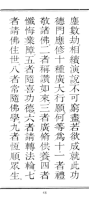 塵數劫相續演說不可窮盡若欲成就此功
德門應修十種廣大行願何等為十一者禮
敬諸佛二者稱讚如來三者廣修供養四者
懺悔業障五者隨喜功德六者請轉法輪七
者請佛住世八者常隨佛學九者恆順眾生